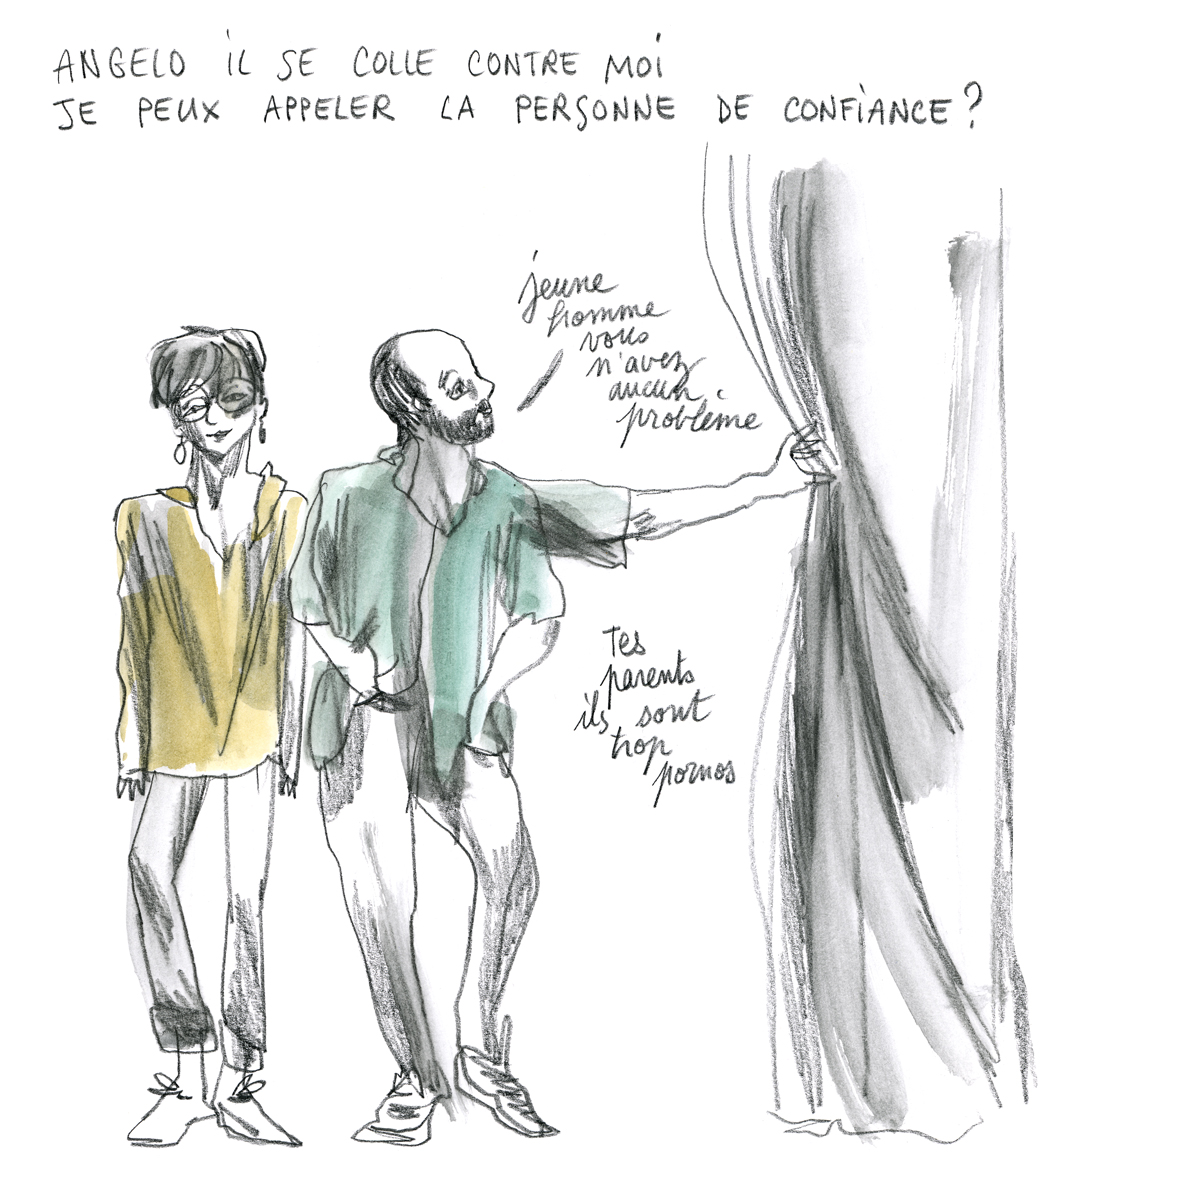 ANGELO IL SE COLLE CONTRE MOI
JE PEUX APPELER LA PERSONNE DE CONFIANCE?
jeune
homme
vous
n'avez
aucun
problème
Tes
parents
ils sont
trop
pornos